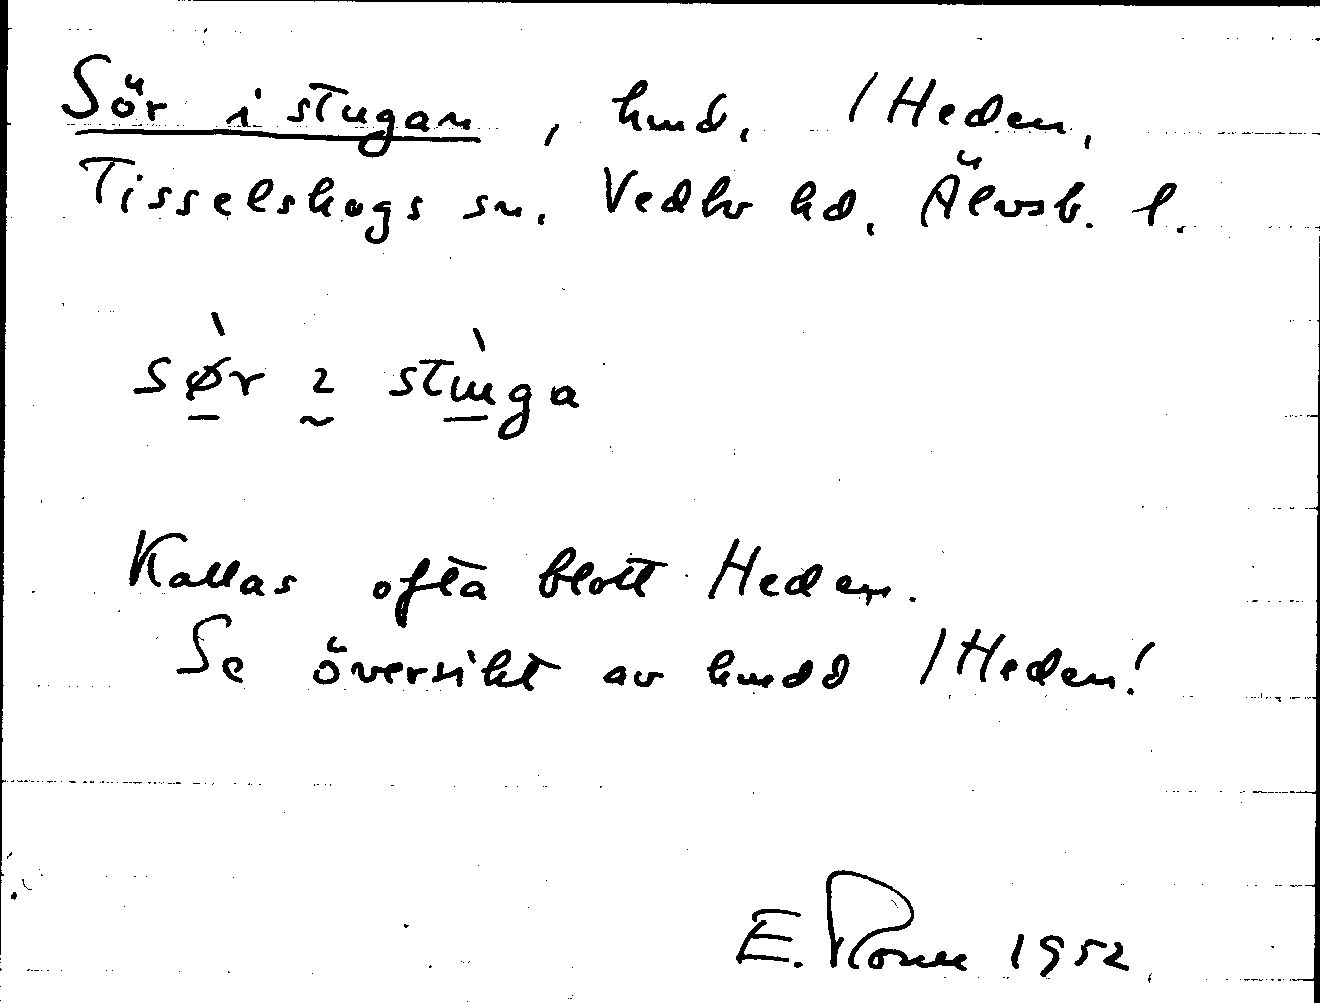 Sör i stugan, hmd. 1 Heden,
Tisselskogs sn. Vedbo hd. Älvsb. l.
sør ɩ stuga
Kallas ofta blott Heden.
Se översikt av hmdd 1 Heden!
E. 1952